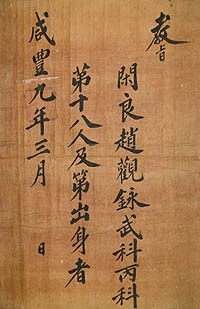 教旨
閑良趙觀錸武科丙科
第十八人及第出身者
咸豊九年三月 日